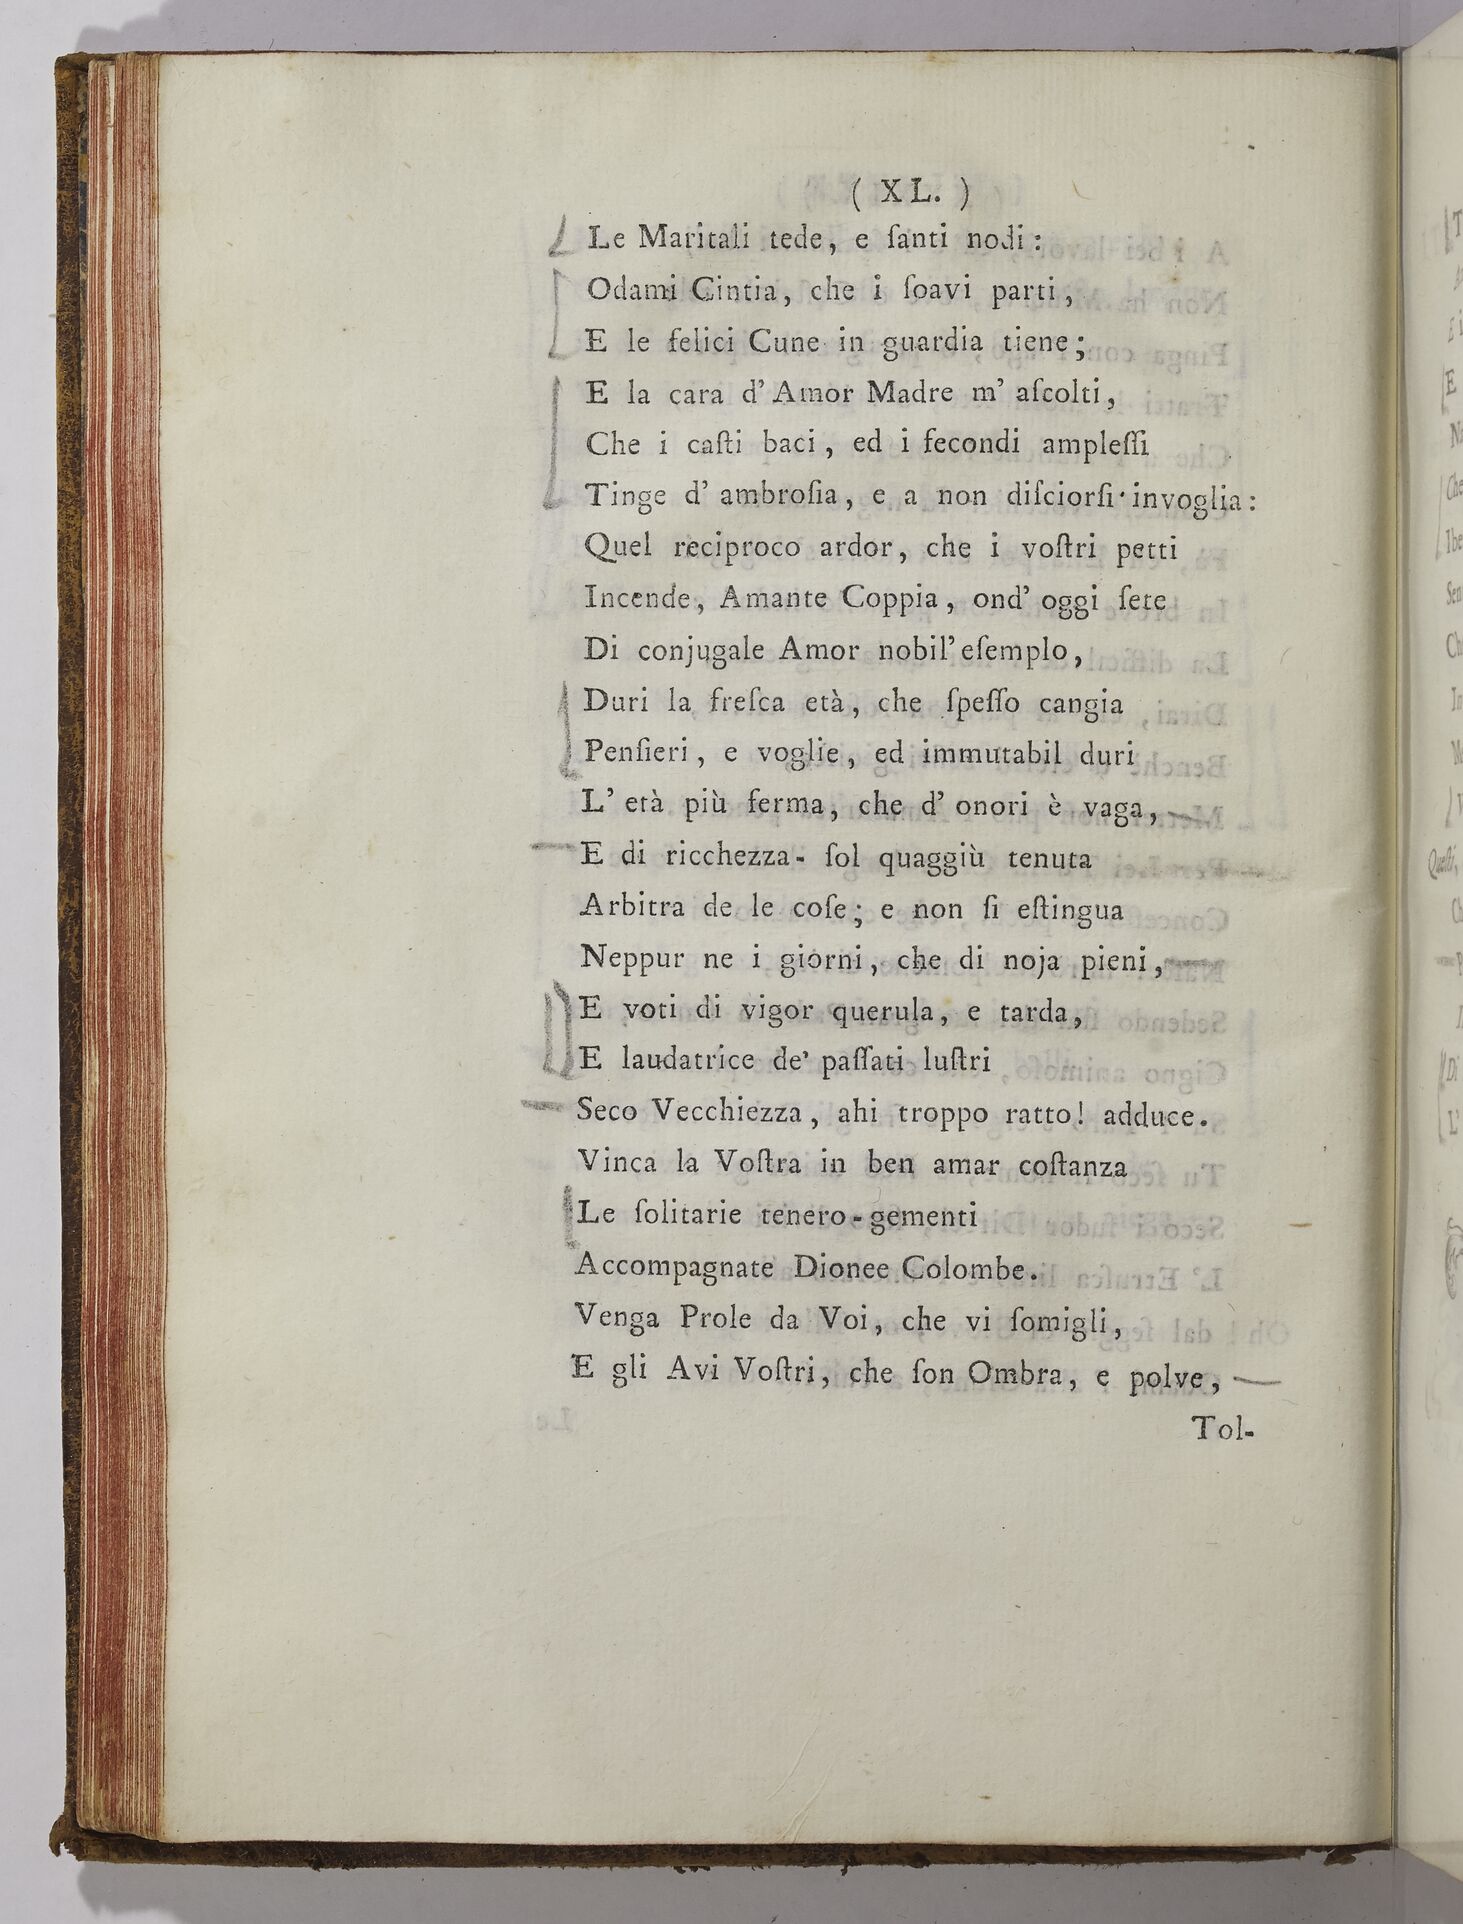 ( XL. )
Le Maritali tede, e ſanti nodi:
Odami Cintia, che i ſoavi parti,
E le felici Cune in guardia tiene;
E la cara d' Amor Madre m' aſcolti,
Che i caſti baci, ed i fecondi ampleſſi
Tinge d' ambroſia, e a non diſciorſi invoglia:
Quel reciproco ardor, che i voſtri petti
Incende, Amante Coppia, ond' oggi ſete
Di conjugale Amor nobil' eſemplo,
Duri la freſca età, che ſpeſſo cangia
Penſieri, e voglie, ed immutabil duri
L' età più ferma, che d' onori è vaga,
E di ricchezza- ſol quaggiù tenuta
Arbitra de le coſe; e non ſi eſtingua
Neppur ne i giorni, che di noja pieni,
E voti di vigor querula, e tarda,
E laudatrice de' paſſati luſtri
Seco Vecchiezza, ahi troppo ratto! adduce.
Vinca la Voſtra in ben amar coſtanza
Le ſolitarie tenero-gementi
Accompagnate Dionee Colombe.
Venga Prole da Voi, che vi ſomigli,
E gli Avi Voſtri, che ſon Ombra, e polve,
Tol-